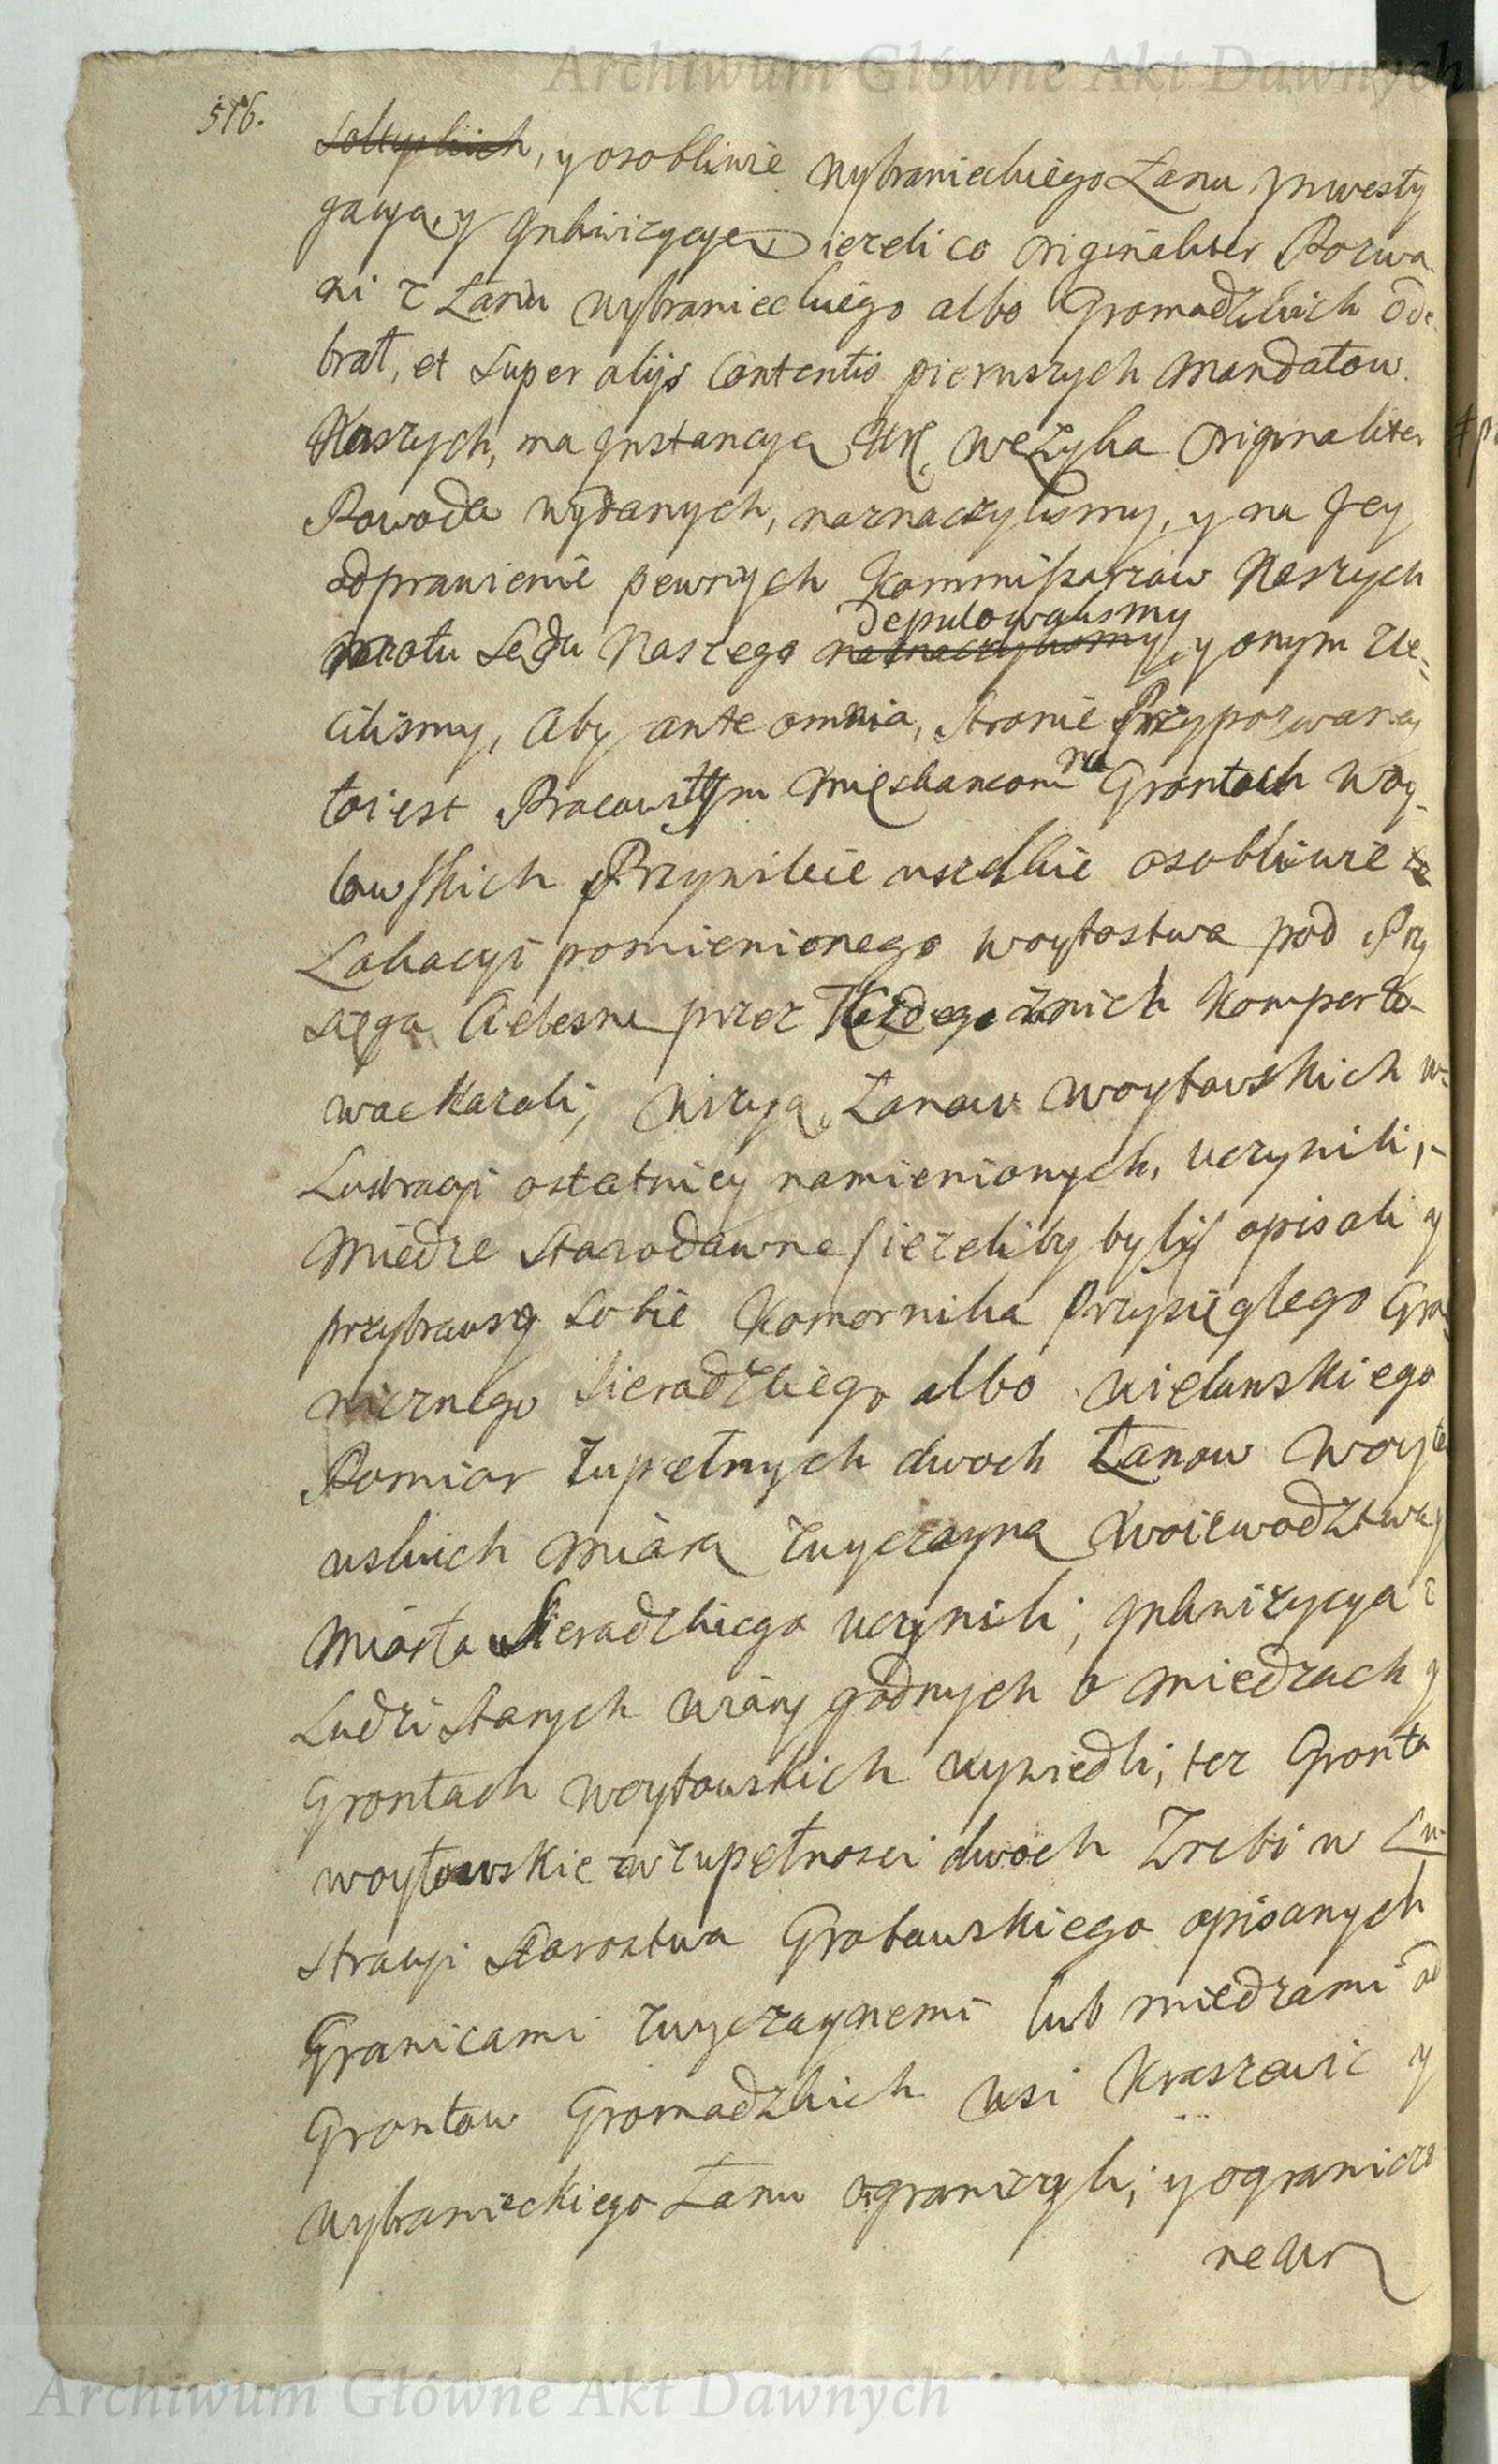 Archiwum Główne Akt Dawnych
516.
Sołtyskich, y osobliwie Wybranieckiego Łanu, Ynwesty
gacyą, y Jnkwizycyą jezeli co Originaliter Pozwa
ni z Łanu wybranieckiego albo Gromadzkich ode
brał, et super alijs Contentis pierwszych Mandatow
Naszych, na Jnstancyą Ur. Węzyka Originaliter
Powoda wydanych, naznaczylismy, y na Jey
odprawienie pewnych Kommissarzow Naszych
Sądu Naszego naznaczylismy deputowalismy, y onym zle-
cilismy, Aby ante omnia, Stronie Przypozwaney
to iest Pracowitym Mieszkancom na Grontach Woy-
towskich Przywileie wszelkie osobliwie
Lokacyi pomienionego woytostwa pod Przy
sięgą Cielesną przez Kazdego z nich komporto-
wac kazali, Wizyą Łanow Woytowskich w
Lustracyi ostatniey namienionych, uczynili,
Miedze Starodawne /iezeliby były/ opisali y
przybrawszy sobie Komornika Przysięglego Gra-
nicznego Sieradzkiego albo Wielunskiego
Pomiar zupełnych dwoch Łanow Woyto
wskich Miarą zwyczayną Woiewodztwa y
Miasta Sieradzkiego uczynili, Jnkwizycyą z
Ludzi Starych wiary godnych o Miedzach y
Grontach Woytowskich wywiedli, tez Gronta
woytowskie w zupełnosci dwoch Zrebi w Lu-
stracyi Starostwa Grabowskiego opisanych
Granicami zwyczaynemi lub miedzami od
Grontow Gromadzkich wsi Kraszewic y
wybranieckiego Łanu ograniczyli; y ograniczo
ne Ur
Archiwum Główne Akt Dawnych